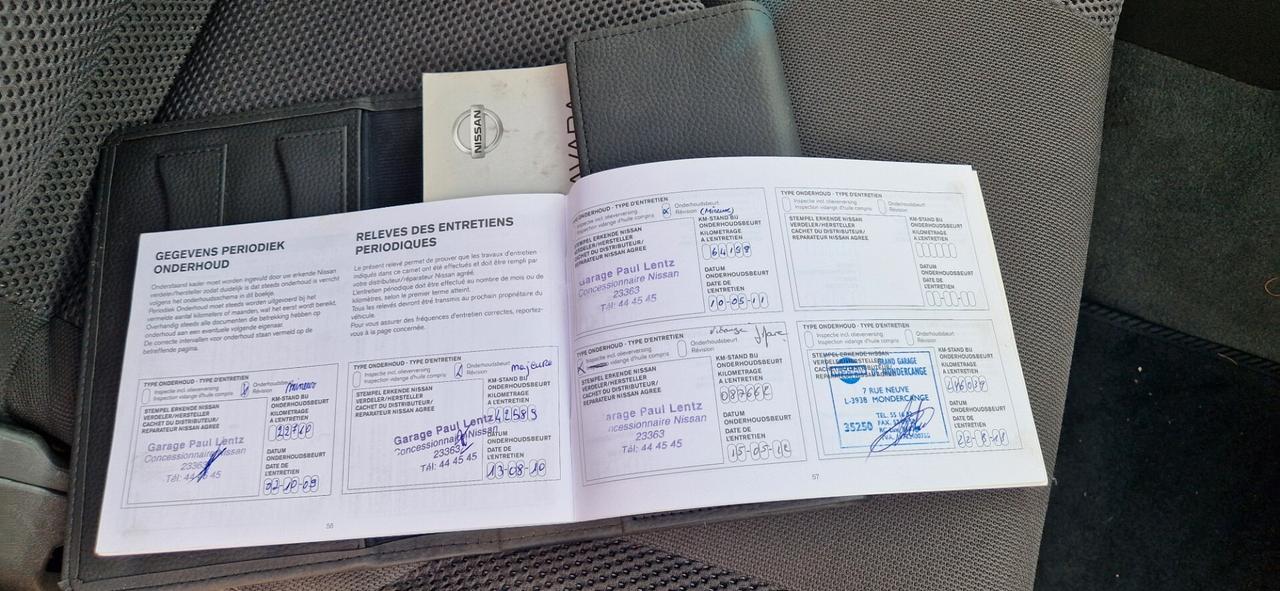 NISSAN
GEGEVENS PERIODIEK
ONDERHOUD
Onderstaand kader moet worden ingevuld door uw erkende Nissan
verdeler/hersteller zodat duidelijk is dat steeds onderhoud is verricht
volgens het onderhoudsschema in dit boekje.
Periodiek Onderhoud moet steeds worden uitgevoerd bij het
vermelde aantal kilometers of maanden, wat het eerst wordt bereikt.
Overhandig steeds alle documenten die betrekking hebben op
onderhoud aan een eventuele volgende eigenaar.
De correcte intervallen voor onderhoud staan vermeld op de
betreffende pagina.
RELEVES DES ENTRETIENS
PERIODIQUES
Le présent relevé permet de prouver que les travaux d'entretien
indiqués dans ce carnet ont été effectués et doit être rempli par
votre distributeur/réparateur Nissan agréé.
L'entretien périodique doit être effectué au nombre de mois ou de
kilomètres, selon le premier terme atteint.
Tous les relevés devront être transmis au prochain propriétaire du
véhicule.
Pour vous assurer des fréquences d'entretien correctes, reportez-
vous à la page concernée.
TYPE ONDERHOUD - TYPE D'ENTRETIEN
Inspectie incl. olieverversing
Inspection vidange d'huile compris
Onderhoudsbeurt
mineure
STEMPEL ERKENDE NISSAN
VERDELER/HERSTELLER
CACHET DU DISTRIBUTEUR/
REPARATEUR NISSAN AGREE
Garage Paul Lentz
Concessionnaire Nissan
23363
Tél: 44 45 45
KM-STAND BIJ
ONDERHOUDSBEURT
KILOMETRAGE
A L'ENTRETIEN
DATUM
ONDERHOUDSBEURT
DATE DE
L'ENTRETIEN
02-10-09
TYPE ONDERHOUD - TYPE D'ENTRETIEN
Inspectie incl. olieverversing
Inspection vidange d'huile compris
Onderhoudsbeurt
Révision
majeure
STEMPEL ERKENDE NISSAN
VERDELER/HERSTELLER
CACHET DU DISTRIBUTEUR/
REPARATEUR NISSAN AGREE
Garage Paul Lentz
Concessionnaire Nissan
23363
Tél: 44 45 45
KM-STAND BIJ
ONDERHOUDSBEURT
KILOMETRAGE
A L'ENTRETIEN
42589
DATUM
ONDERHOUDSBEURT
DATE DE
L'ENTRETIEN
13-08-10
56
TYPE ONDERHOUD - TYPE D'ENTRETIEN
Inspectie incl. olieverversing
Inspection vidange d'huile compris
Onderhoudsbeurt
Révision
(Mineure)
STEMPEL ERKENDE NISSAN
VERDELER/HERSTELLER
CACHET DU DISTRIBUTEUR/
REPARATEUR NISSAN AGREE
Garage Paul Lentz
Concessionnaire Nissan
23363
Tél: 44 45 45
KM-STAND BIJ
ONDERHOUDSBEURT
KILOMETRAGE
A L'ENTRETIEN
DATUM
ONDERHOUDSBEURT
DATE DE
L'ENTRETIEN
10-05-11
TYPE ONDERHOUD - TYPE D'ENTRETIEN
Inspectie incl. olieverversing
Inspection vidange d'huile compris
Onderhoudsbeurt
Révision
STEMPEL ERKENDE NISSAN
VERDELER/HERSTELLER
CACHET DU DISTRIBUTEUR/
REPARATEUR NISSAN AGREE
KM-STAND BIJ
ONDERHOUDSBEURT
KILOMETRAGE
A L'ENTRETIEN
DATUM
ONDERHOUDSBEURT
DATE DE
L'ENTRETIEN
TYPE ONDERHOUD - TYPE D'ENTRETIEN
Inspectie incl. olieverversing
Inspection vidange d'huile compris
Onderhoudsbeurt
Révision
STEMPEL ERKENDE NISSAN
VERDELER/HERSTELLER
CACHET DU DISTRIBUTEUR/
REPARATEUR NISSAN AGREE
Garage Paul Lentz
Concessionnaire Nissan
23363
Tél: 44 45 45
KM-STAND BIJ
ONDERHOUDSBEURT
KILOMETRAGE
A L'ENTRETIEN
DATUM
ONDERHOUDSBEURT
DATE DE
L'ENTRETIEN
15-05-12
TYPE ONDERHOUD - TYPE D'ENTRETIEN
Inspectie incl. olieverversing
Inspection vidange d'huile compris
Onderhoudsbeurt
Révision
STEMPEL ERKENDE NISSAN
NISSAN
GRAND GARAGE
DE MONDERCANGE
7 RUE NEUVE
L-3938 MONDERCANGE
25250
KM-STAND BIJ
ONDERHOUDSBEURT
KILOMETRAGE
A L'ENTRETIEN
DATUM
ONDERHOUDSBEURT
DATE DE
L'ENTRETIEN
57